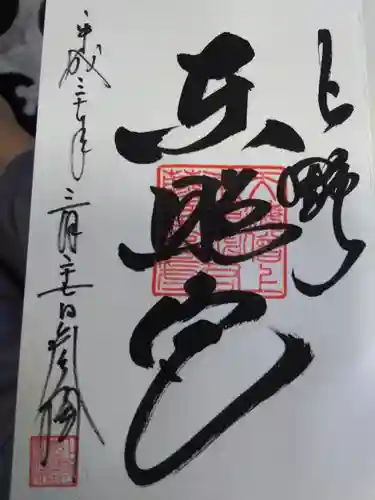 上野
東照宮
平成三十年三月二十五日参拝